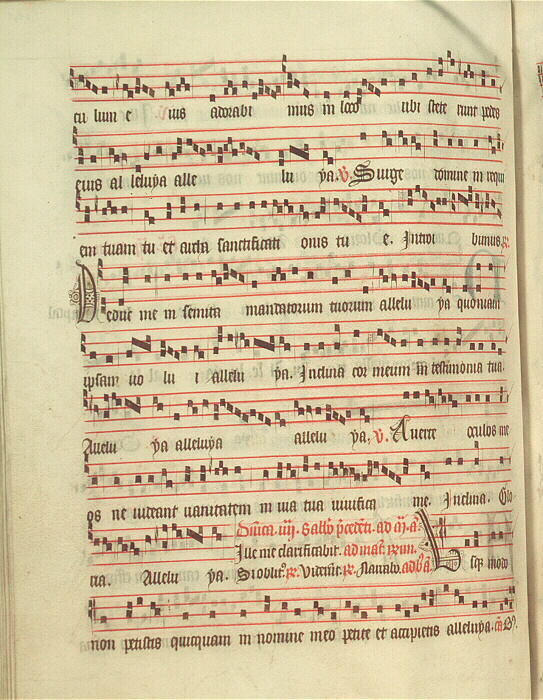 cu lum e ius adorabi mus in loco ubi stete runt pedes
eius al leluya alle lu ya. V. Surge domine in requi
em tuam tu et archa sanctificati onis tu e. Introi bimus. R.
Deduc me in semita mandatorum tuorum allelu ya quoniam
ipsam vo lu i allelu ya. Inclina cor meum in testimonia tua.
Allelu ya alleluya allelu ya. V. Averte oculos me
os ne videant vanitatem in via tua vivifica me. Inclina. Glo
ria. Allelu ya.
Dnica. iiij. Sabbo
Ille me clarificabit.
Si oblit9. R. Viderūt. R.
Usq3 modo
non petistis quicquam in nomine meo petite et accipietis alleluya.